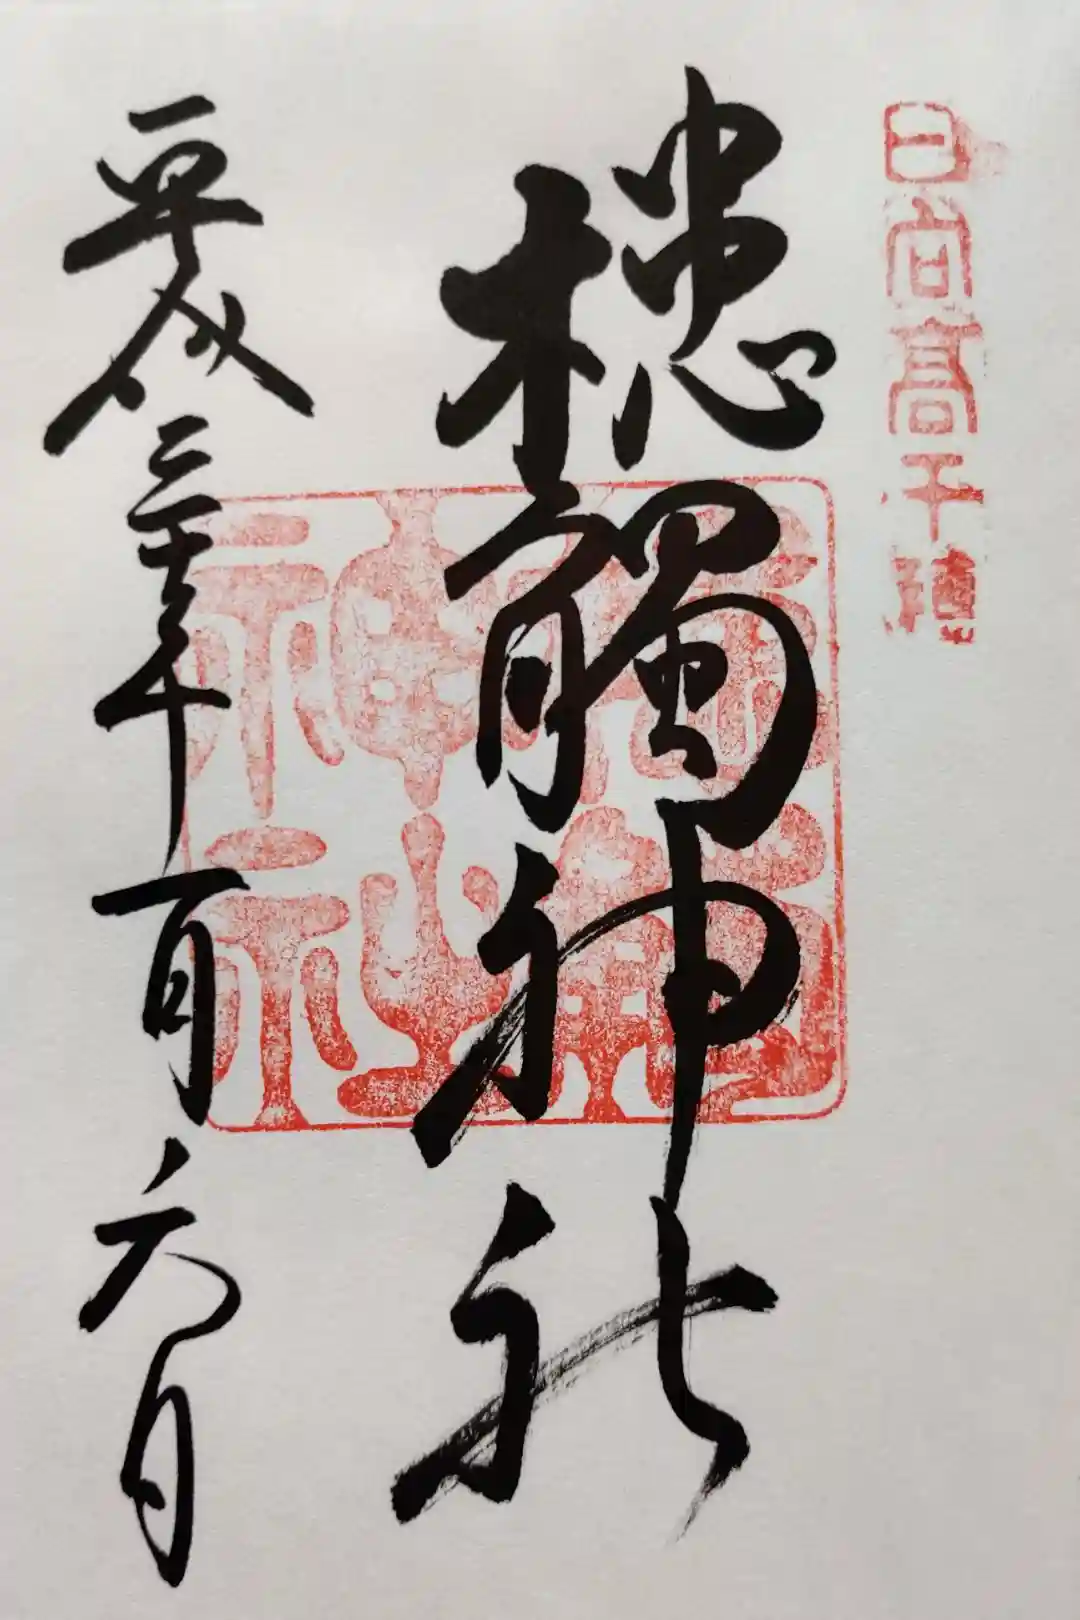 日向高千穂
槵觸神社
槵觸
神社
平成三十年一月六日